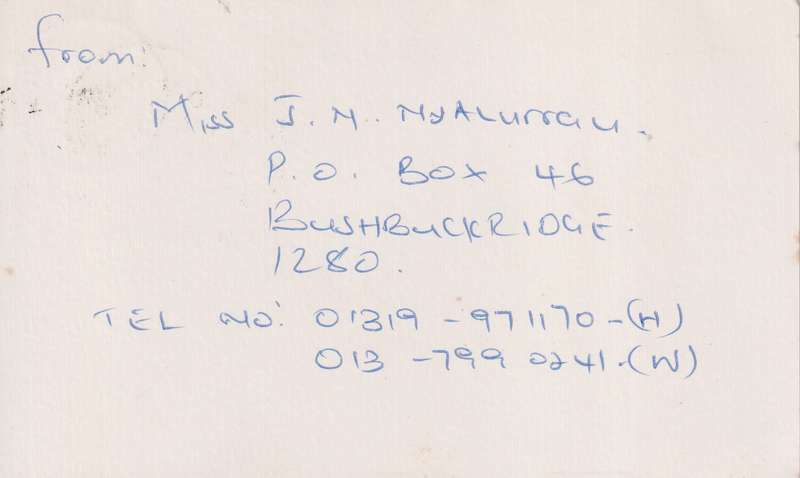 from:
Miss J.N.
P.O. BOX 46
BUSHBUCKRIDGE.
1280.
TEL NO: 01319 - 971170 - (H)
013 - 799 0241 - (W)